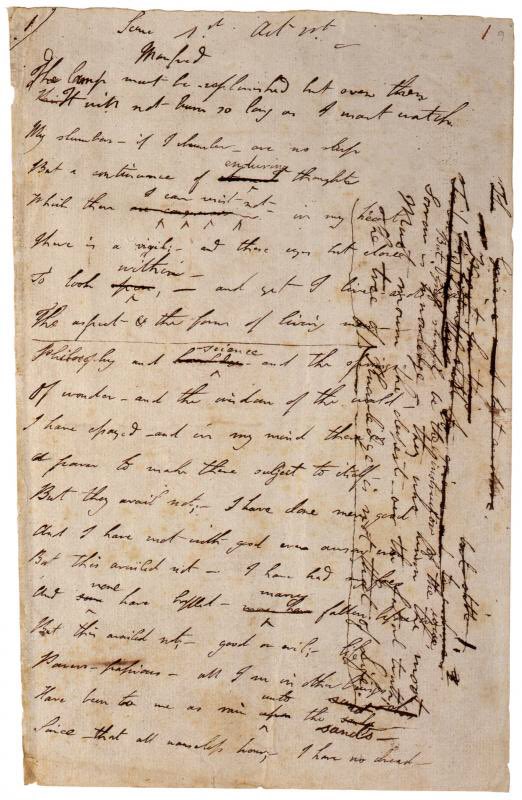 1)
Scene 1st Act 1st
1
9
Manfred
The lamp must be replenished but even then
It will not burn so long as I must watch
My slumbers – if I slumber – are no sleep
But a continuance of enduring thoughts
Which then I can resist not – in my heart
There is a vigil; – and these eyes but close
To look within, – and yet I live – and
The aspect & the form of living
Philosophy and science – and the springs
Of wonder – and the wisdom of the world –
I have essayed – and in my mind there
A power to make these subject to itself
But they avail not; – I have done men good
And I have met with good even among men
But this availed not – I have had my
And none have baffled – many fallen
But this availed not; – good or evil; – life
Powers – passions – all I see in other
Have been to me as rain unto the sands –
Since – that all nameless hour; – I have no dread
But Grief should be the Instructor of the wise,
Sorrow is knowledge – they who know the most
Must mourn the deepest o'er the fatal truth
The tree of knowledge is not that of Life